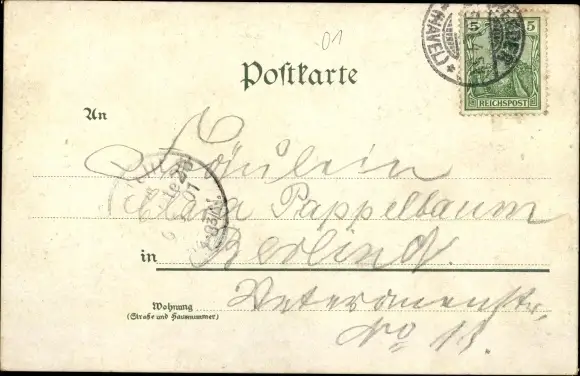 01
(HAVEL)
5 5
REICHSPOST
Postkarte
An
Fräulein
Clara Pappelbaum
in Berlin N.
Wohnung Veteranenstr.
(Straße und Hausnummer)
No 13.